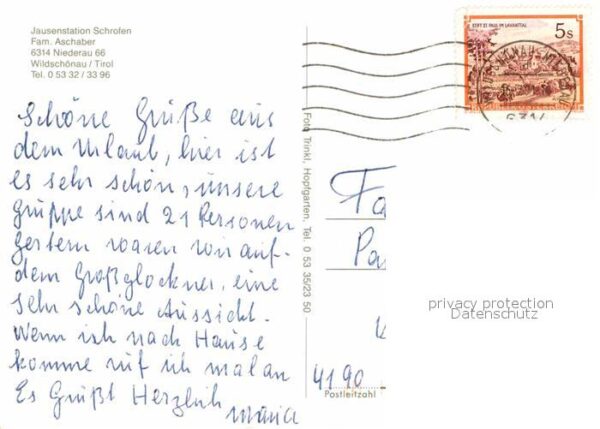 Jausenstation Schrofen
Fam. Aschaber
6314 Niederau 66
Wildschönau / Tirol
Tel. 0 53 32 / 33 96
STIFT ST. PAUL IM LAVANTTAL
5s
Schöne Grüße aus
dem Urlaub, hier ist
es sehr schön, unsere
Gruppe sind 21 Personen
gestern waren wir auf-
dem Großglockner, eine
sehr schöne Aussicht.
Wenn ich nach Hause
komme ruf ich mal an
Es Grüßt Herzlich
Maria
Foto Trinkl, Hopfgarten, Tel. 0 53 35/23 50
Fa
Pa
4190
Postleitzahl
privacy protection
Datenschutz